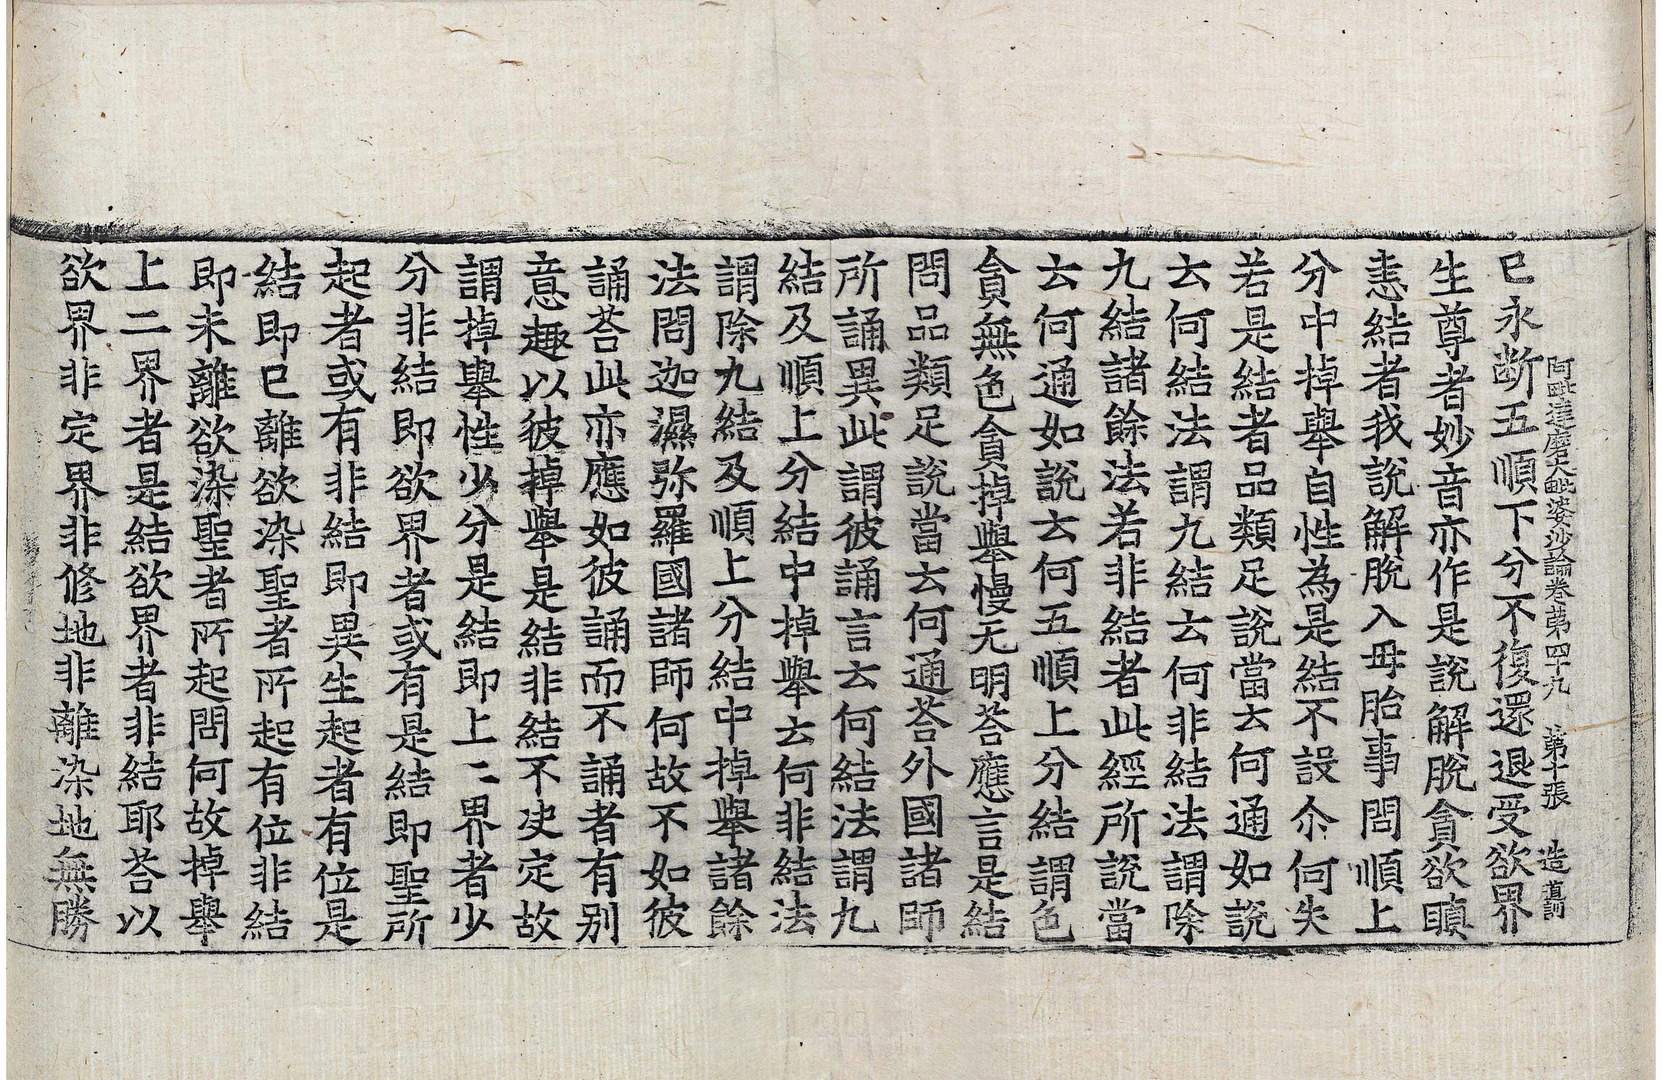 阿毗達磨大毗婆沙論卷苐四十九　苐十張　造
已永断五順下分不復還退受欲界
生尊者妙音亦作是說解脫貪欲瞋
恚結者我說解脫入母胎事問順上
分中掉舉自性為是結不設尒何失
若是結者品類足說當云何通如說
云何結法謂九結云何非結法謂除
九結諸餘法若非結者此經所說當
云何通如說云何五順上分結謂色
貪無色貪掉舉慢无明荅應言是結
問品類足說當云何通荅外國諸師
所誦異此謂彼誦言云何結法謂九
結及順上分結中掉舉云何非結法
謂除九結及順上分結中掉舉諸餘
法問迦濕弥羅國諸師何故不如彼
誦荅此亦應如彼誦而不誦者有别
意趣以彼掉舉是結非結不决定故
謂掉舉性少分是結即上二界者少
分非結即欲界者或有是結即聖所
起者或有非結即異生起者有位是
結即已離欲染聖者所起有位非結
即未離欲染聖者所起問何故掉舉
上二界者是結欲界者非結耶荅以
欲界非定界非修地非離染地無勝